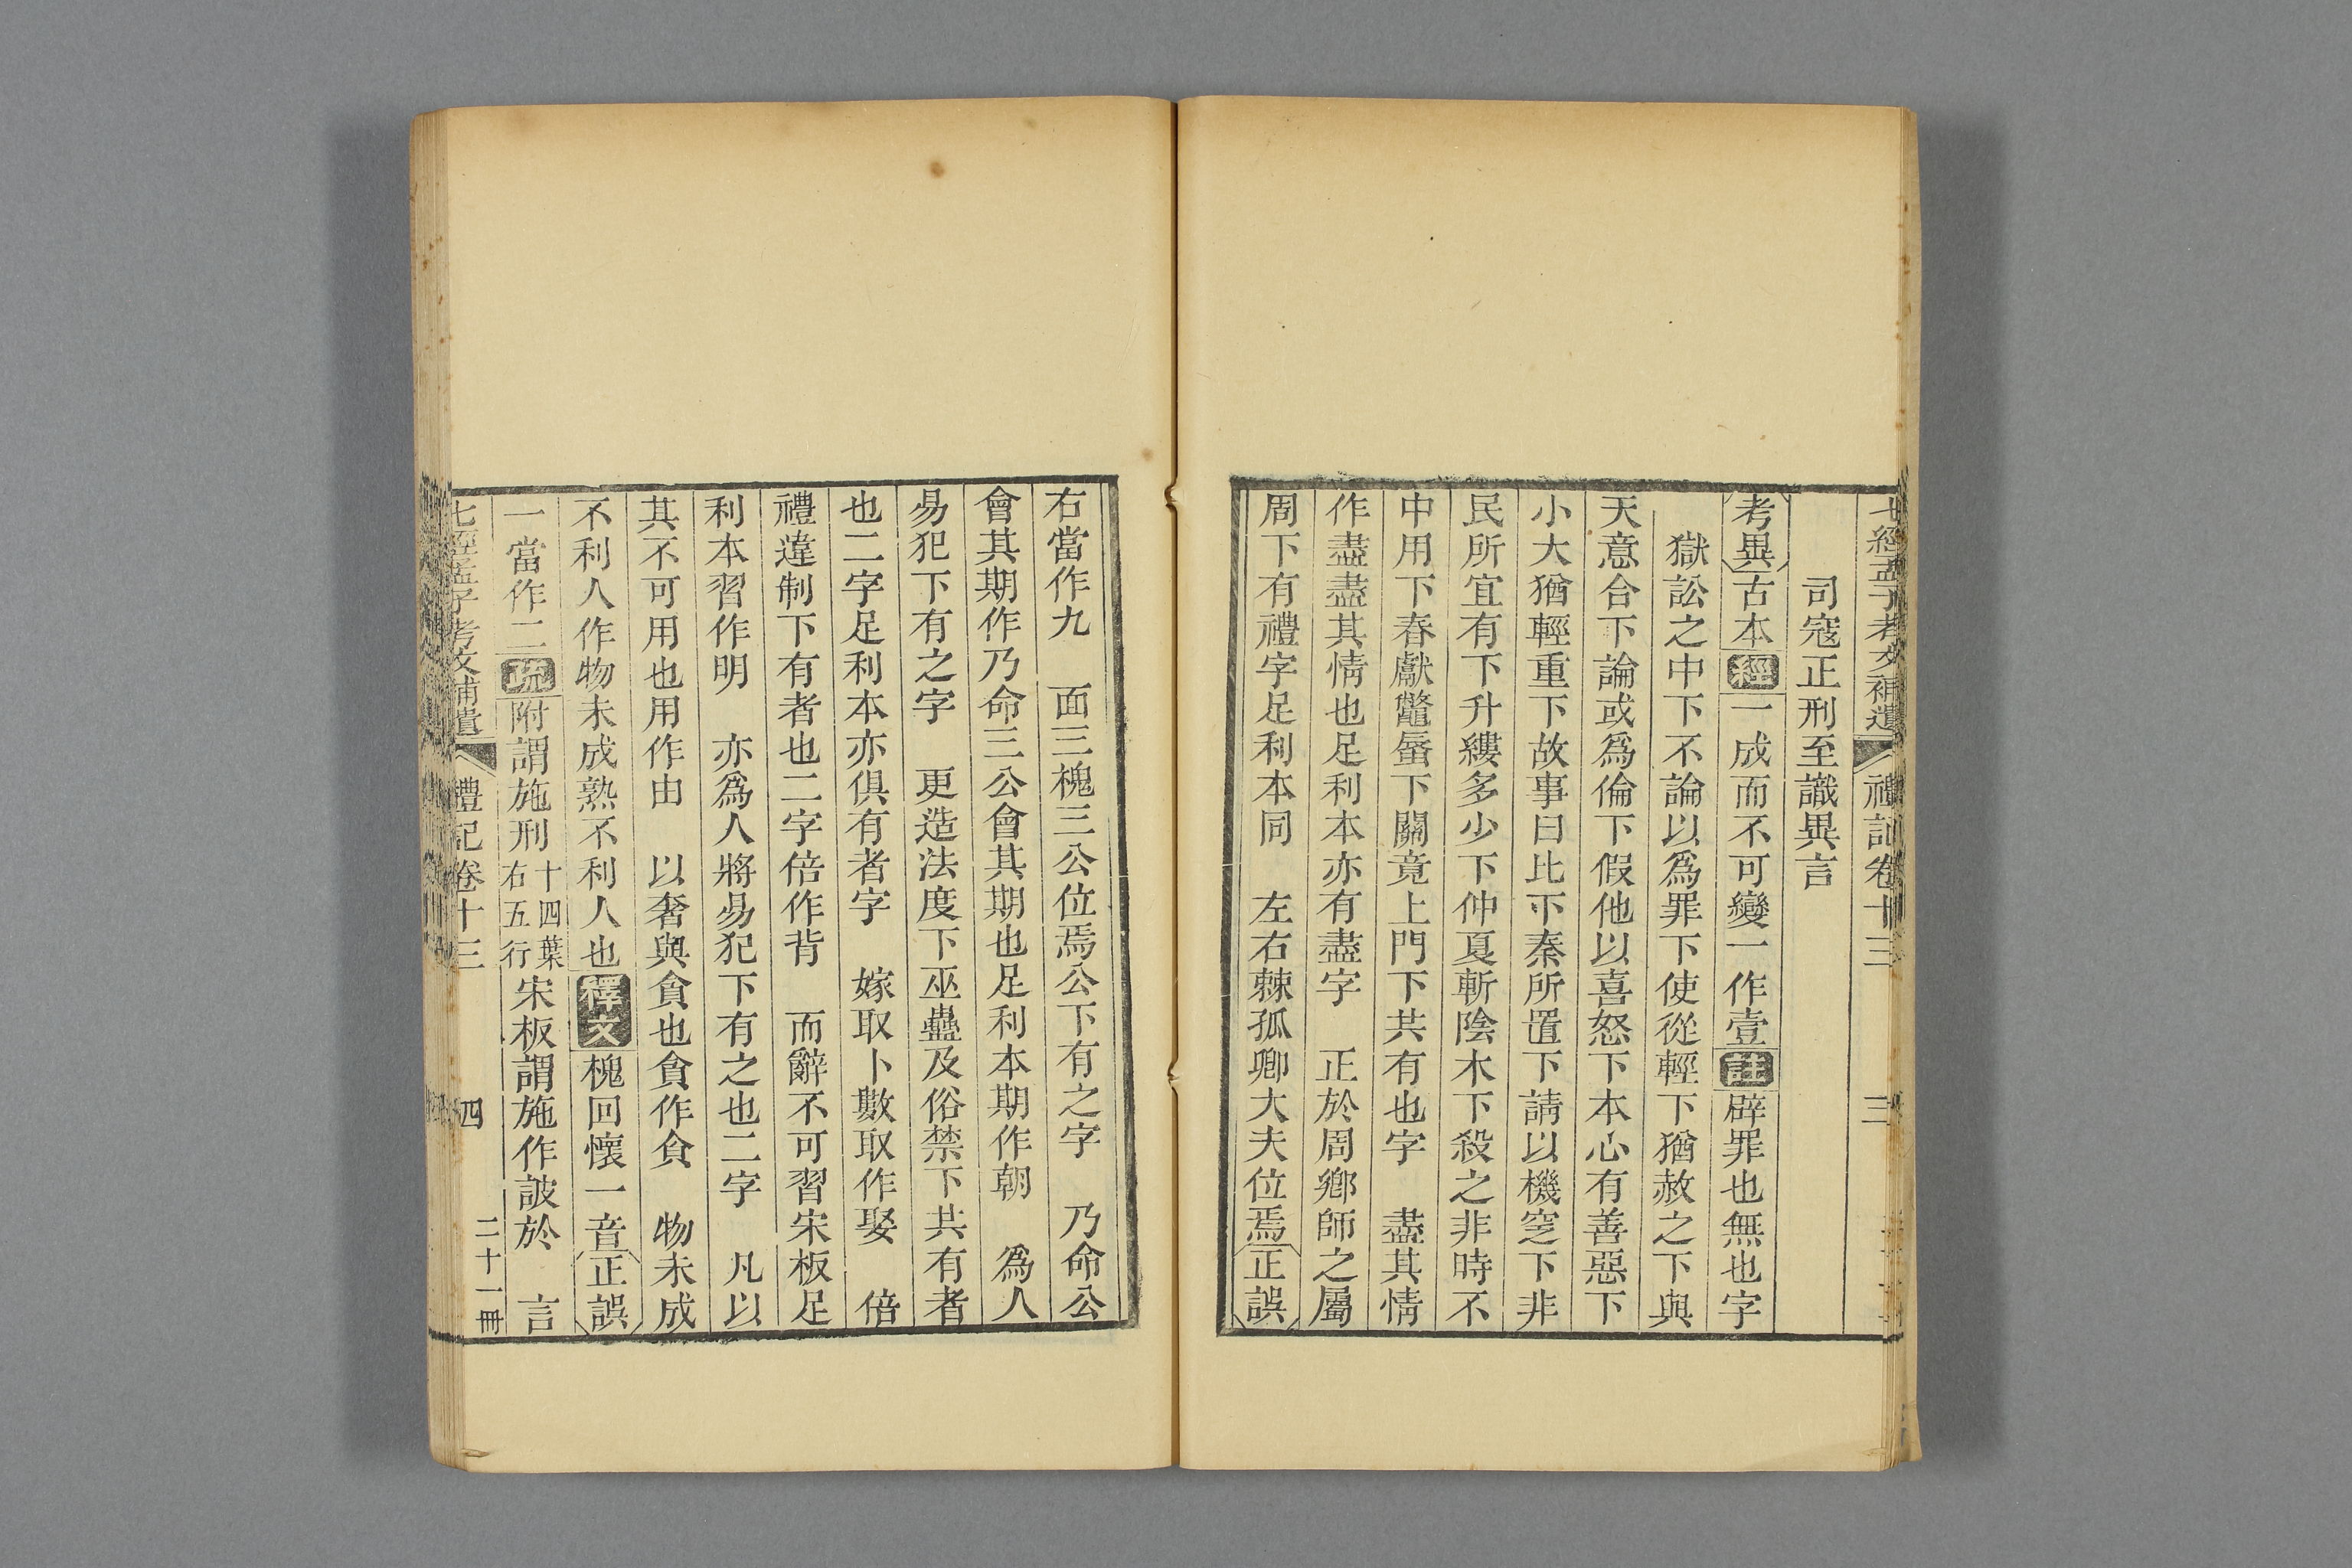 七經孟子考文補遺 禮記卷十三 三
司寇正刑至識異言
考異古本經一成而不可變一作壹註辟罪也無也字
獄訟之中下不論以爲罪下使從輕下猶赦之下與
天意合下論或爲倫下假他以喜怒下本心有善惡下
小大猶輕重下故事曰比下秦所置下請以機窆下非
民所宜有下升縷多少下仲夏斬陰木下殺之非時不
中用下春獻鼈蜃下關竟上門下共有也字 盡其情
作盡盡其情也足利本亦有盡字 正於周鄕師之屬
周下有禮字足利本同 左右棘孤卿大夫位焉正誤
右當作九 面三槐三公位焉公下有之字 乃命公
會其期作乃命三公會其期也足利本期作朝 爲人
易犯下有之字 更造法度下巫蠱及俗禁下共有者
也二字足利本亦俱有者字 嫁取卜數取作娶 倍
禮違制下有者也二字倍作背 而辭不可習宋板足
利本習作明 亦爲人將易犯下有之也二字 凡以
其不可用也用作由 以奢與貪也貪作貪 物未成
不利人作物未成熟不利人也釋文槐回懷一音正誤
一當作二疏附謂施刑十四葉右五行宋板謂施作詖於 言
七經孟子考文補遺 禮記卷十三 四 二十一冊